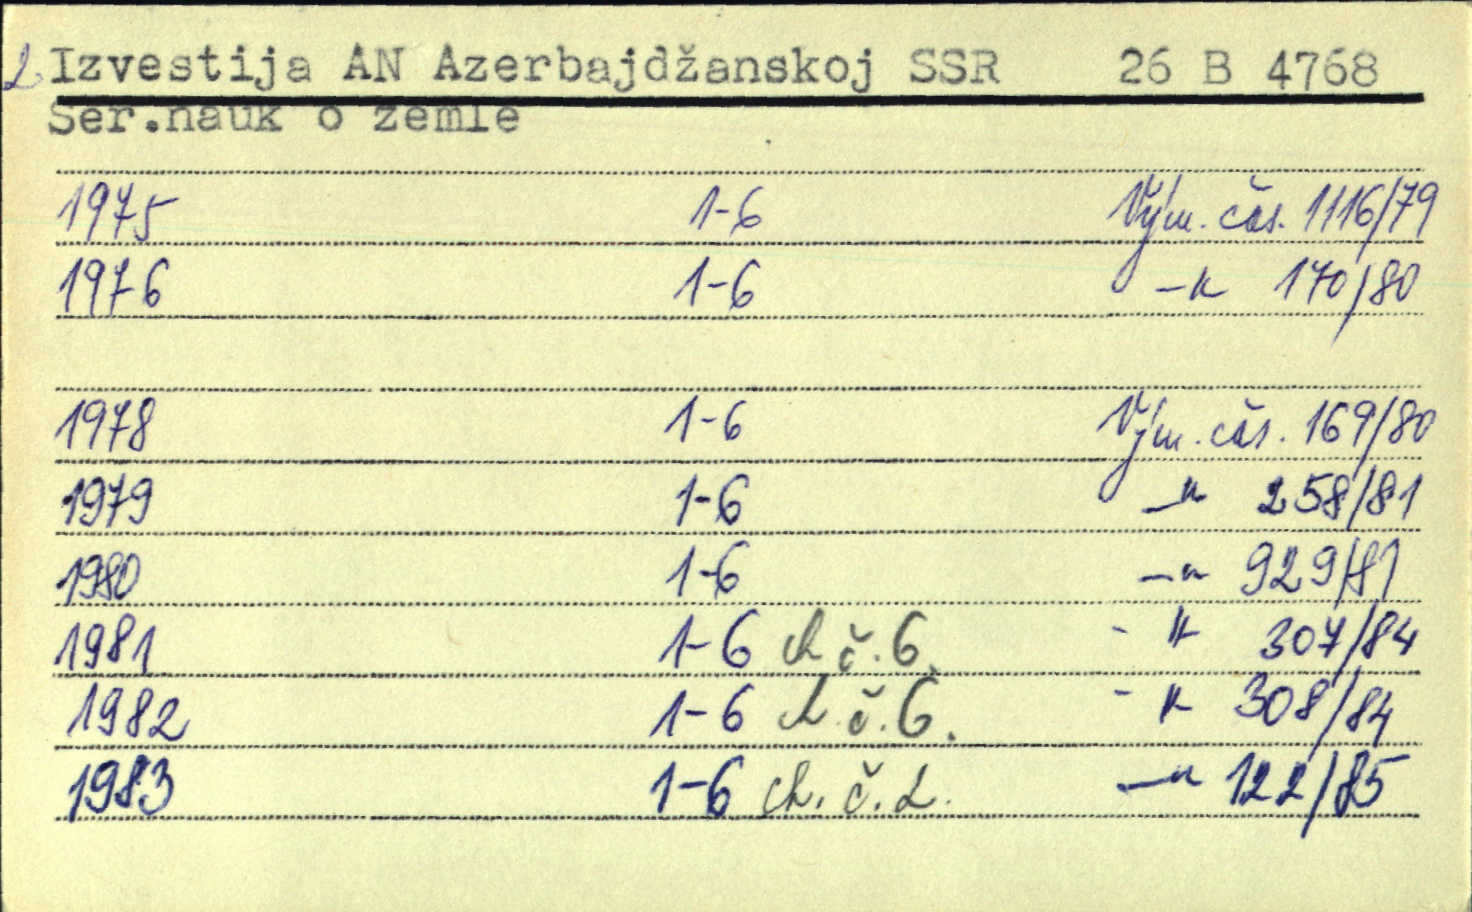 2 Izvestija AN Azerbajdžanskoj SSR 26 B 4768
Ser.nauk o zemle
1975 1-6 Vým. čas. 1116/79
1976 1-6 -"- 170/80
1978 1-6 Vým. čas. 169/80
1979 1-6 -"- 258/81
1980 1-6 -"- 929/81
1981 1-6 ch č. 6. -"- 307/84
1982 1-6 ch. č. 6. -"- 308/84
1983 1-6 ch. č. 2. -"- 122/85